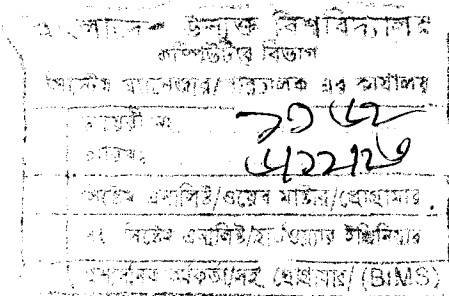 বাংলাদেশ উন্মুক্ত বিশ্ববিদ্যালয়
কম্পিউটার বিভাগ
সিস্টেম ম্যানেজার/পরিচালক এর কার্যালয়
ডায়েরী নং
তারিখঃ
সিস্টেম এনালিষ্ট/ওয়েব মাস্টার/প্রোগ্রামার
সিস্টেম এনালিষ্ট/হার্ডওয়্যার ইঞ্জিনিয়ার
প্রশাসনিক কর্মকর্তা/সহ. প্রোগ্রামার/ (BIMS)